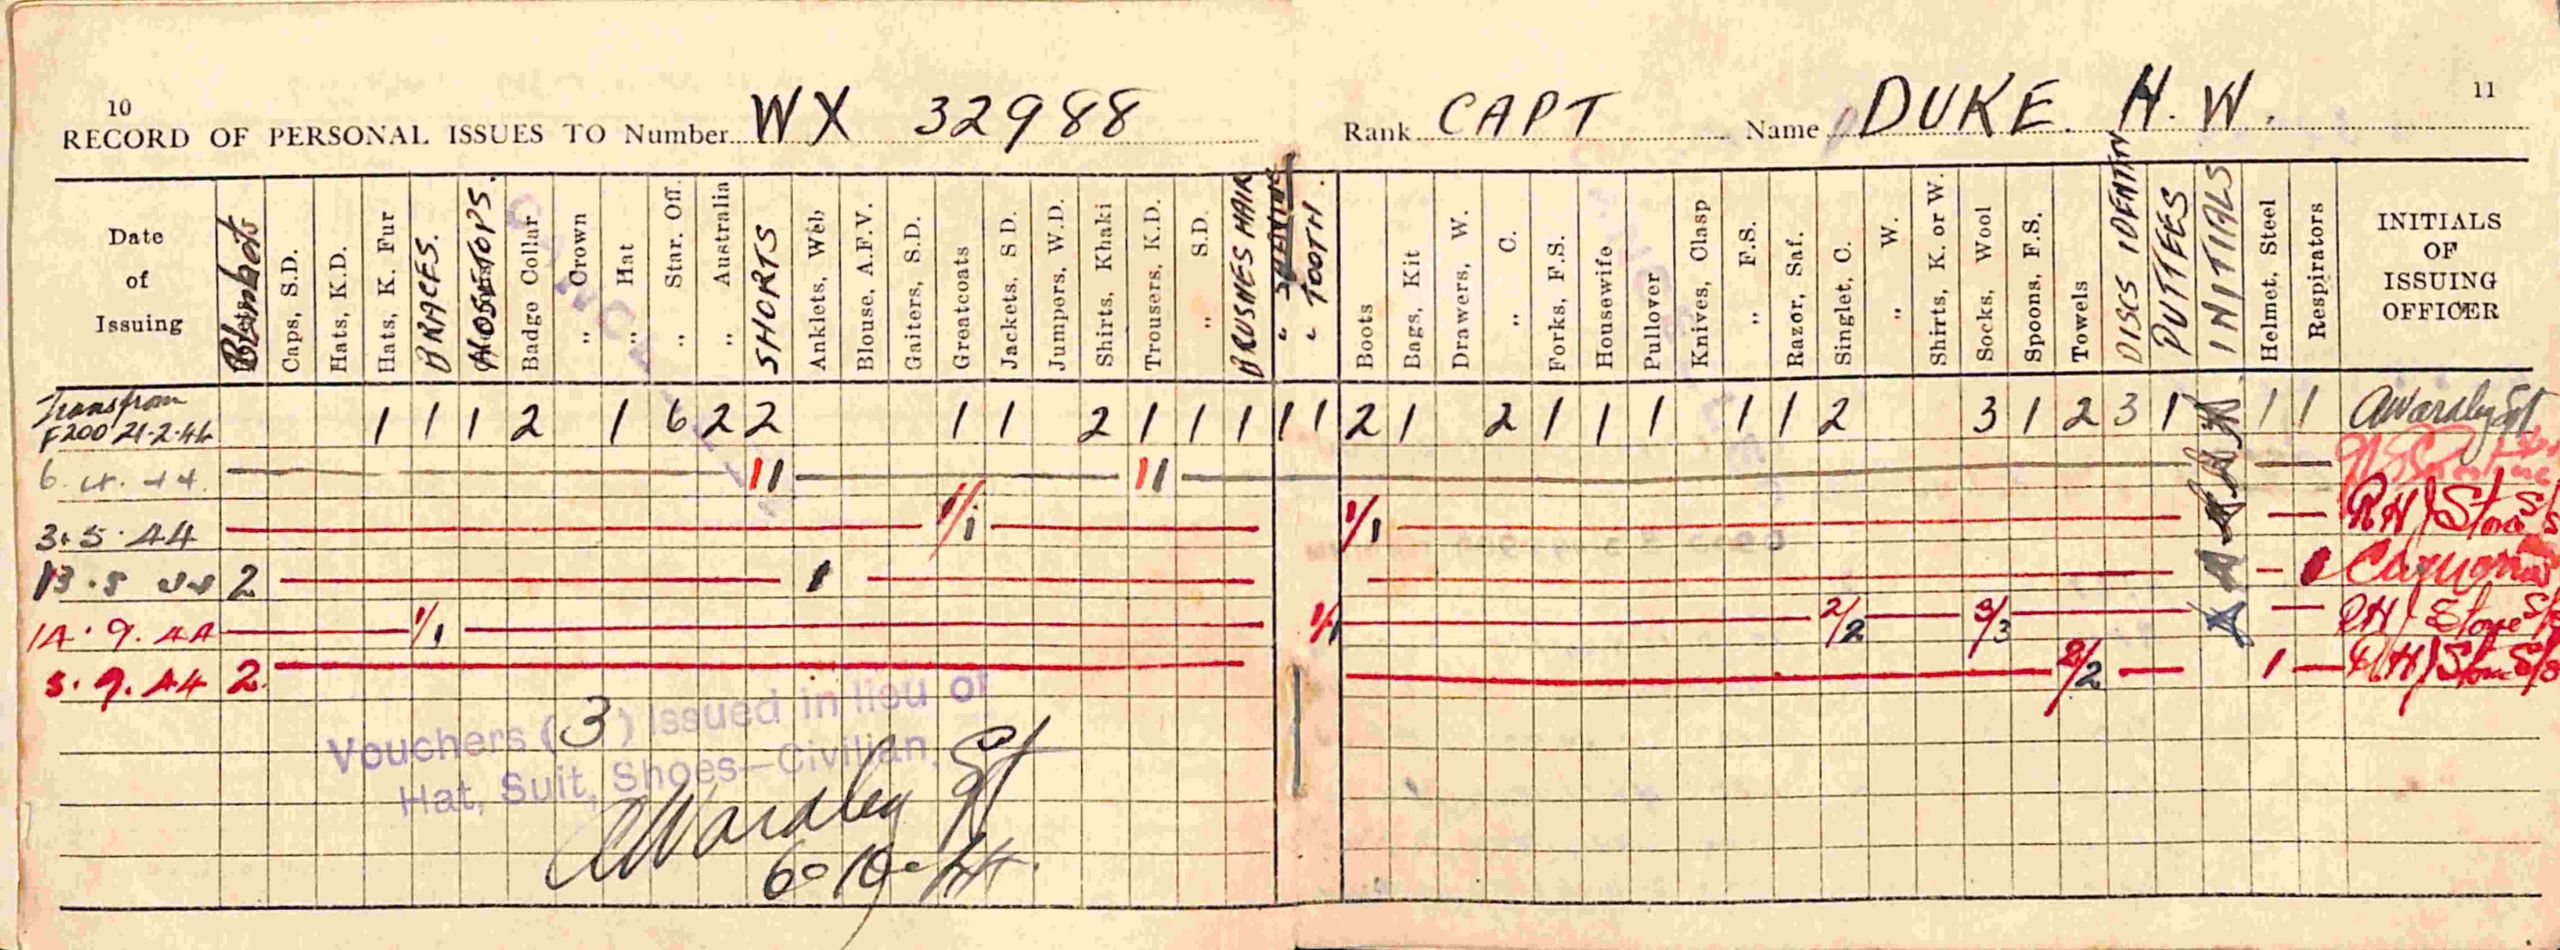 10
11
RECORD OF PERSONAL ISSUES TO Number WX 32988 Rank CAPT Name DUKE. H. W.
Date of Issuing
Blankets
Caps, S.D.
Hats, K.D.
Hats, K. Fur
BRACES.
HOSETOPS.
Badge Collar
„ Crown
„ Hat
„ Star. Off.
„ Australia
SHORTS
Anklets, Web
Blouse, A.F.V.
Gaiters, S.D.
Greatcoats
Jackets, S D.
Jumpers, W.D.
Shirts, Khaki
Trousers, K.D.
„ S.D.
BRUSHES HAIR
" TOOTH.
Boots
Bags, Kit
Drawers, W.
„ C.
Forks, F.S.
Housewife
Pullover
Knives, Clasp
„ F.S.
Razor, Saf.
Singlet, C.
„ W.
Shirts, K. or W.
Socks, Wool
Spoons, F.S.
Towels
DISCS IDENTN
PUTTEES
INITIALS
Helmet, Steel
Respirators
INITIALS OF ISSUING OFFICER
Trans from
F200 21-2-44 1 1 1 2 1 6 2 2 1 1 2 1 1 1 1 1 2 1 2 1 1 1 1 1 2 3 1 2 3 1 1 1 AWardley Sgt
6. 4. 44. 11 11
3.5.44 1/1 1/1 RH J Stone S/S
13.5 44 2 1 1
14.9.44 1/1 1/1 2/2 3/3 RH J Stone S/S
5.9.44 2 2/2 1 RH J Stone S/S
CANCELLED
Vouchers (3) Issued in lieu of
Hat, Suit, Shoes—Civilian.
AWardley Sgt
6-10-44.